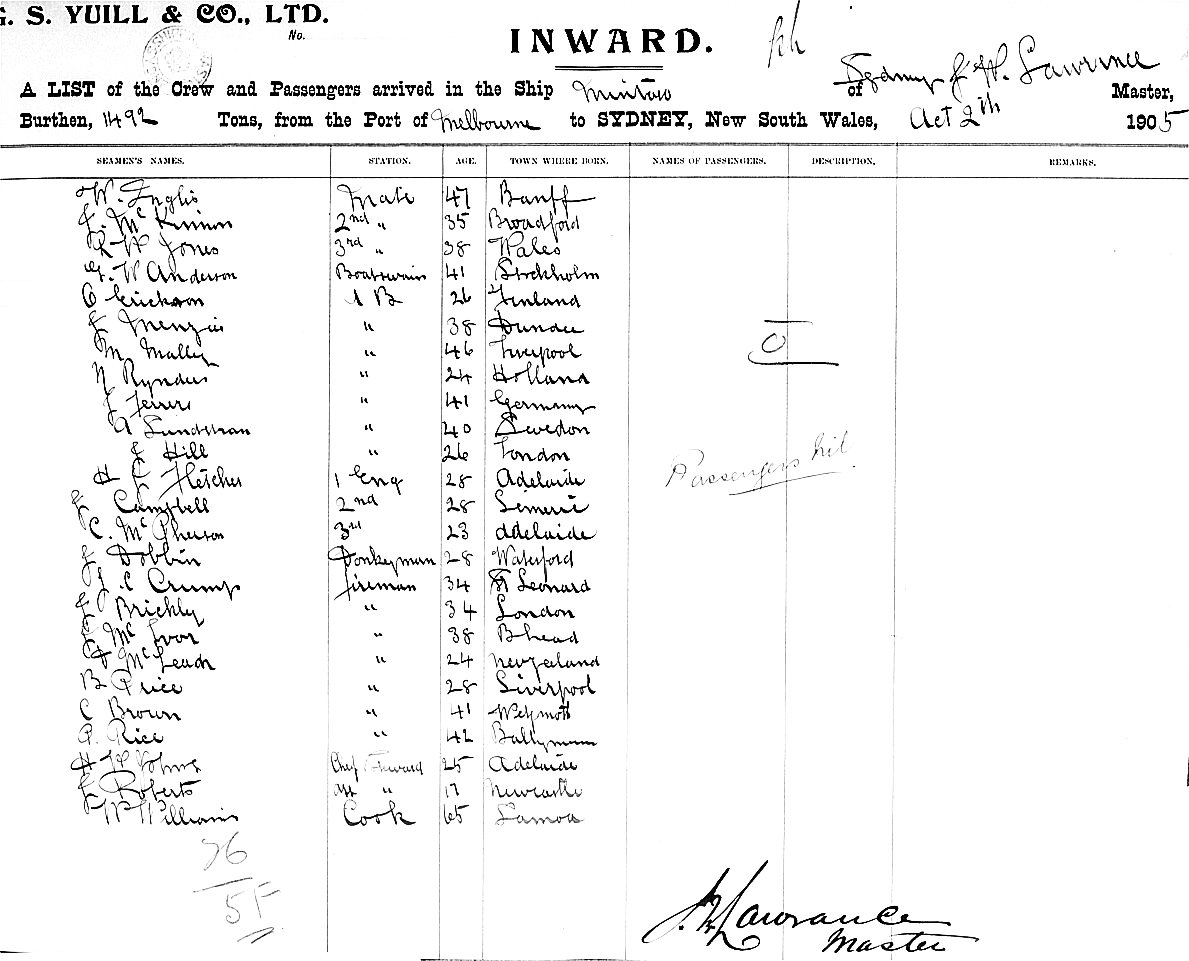 G. S. YUILL & CO., LTD.
No.
INWARD.
A LIST of the Crew and Passengers arrived in the Ship Mintaro of Sydney J. H. Lawrence Master,
Burthen, 1492 Tons, from the Port of Melbourne to SYDNEY, New South Wales, Oct 2th 1905
SEAMEN'S NAMES. STATION. AGE. TOWN WHERE BORN. NAMES OF PASSENGERS. DESCRIPTION. REMARKS.
W. Inglis Mate 47 Banff
J. McKinnon 2nd " 35 Broadford
R W Jones 3rd " 38 Wales
G. W Anderson Boatswain 41 Stockholm
C Erickson A B 26 Finland
J Menzies " 38 Dundee
M Mally " 46 Liverpool
N Rynders " 24 Holland
J Ferrers " 41 Germany
A Lundstran " 40 Sweden
J Hill " 26 London
H J Fletcher 1 Eng 28 Adelaide
J Campbell 2nd 28 Limeric
C. McPherson 3rd 23 Adelaide
J Dobbin Donkeyman 28 Waterford
J C Crump fireman 34 St Leonard
J Brickly " 34 London
J McIvor " 38 B head
A McLeach " 24 New Zealand
B Price " 28 Liverpool
C Brown " 41 Weymoth
P. Rice " 42 Ballymum
H Johns Chef Steward 25 Adelaide
J Roberts ass " 17 Newcastle
W Williams Cook 65 Samoa
0
Passengers nil.
26
5F
J. H. Lawrance
Master